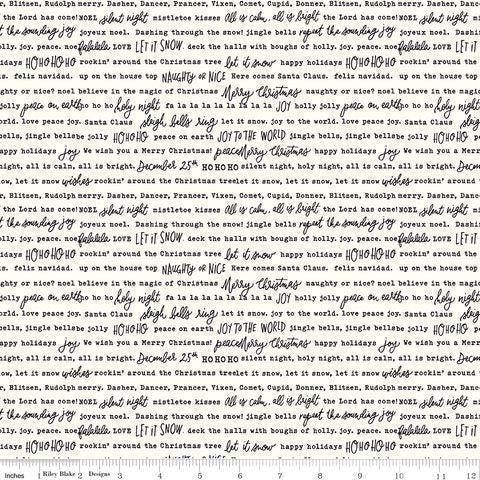 r, Blitzen, Rudolph merry. Dasher, Dancer, Prancer, Vixen, Comet, Cupid, Donner, Blitzen, Rudolph merry. Dasher,
f the Lord has come! NOEL silent night mistletoe kisses All is calm, all is bright the Lord has come! NOEL silent night
t the sounding joy joyeux noel. Dashing through the snow! jingle bells repeat the sounding joy joyeux noel. D
olly. joy. peace. noe falalala LOVE LET IT SNOW. deck the halls with boughs of holly. joy. peace. noe falalala LOVE LET IT S
idays HO HO HO HO rockin' around the Christmas tree let it snow happy holidays HO HO HO HO rockin'
s. feliz navidad. up on the house top NAUGHTY OR NICE Here comes Santa Claus. feliz navidad. up on the house
aughty or nice? noel believe in the magic of Christmas Merry Christmas naughty or nice? noel believe in the m
olly jolly peace on earth o ho ho holy night fa la la la la la la la la JOY holly jolly peace on earth o ho ho holy nigh
orld. love peace joy. Santa Claus sleigh bells ring let it snow to the world. love peace joy. Santa Claus sle
bells, jingle bells he jolly HO HO HO peace on earth JOY TO THE WORLD jingle bells, jingle bells he jolly HO HO HO
happy holidays joy We wish you a Merry Christmas! peace Merry Christmas happy holidays joy We wish you a Me
night, all is calm, all is bright. December 25th HO HO HO silent night, holy night, all is calm, all is bright. Decemb
now, let it snow wishes rockin' around the Christmas tree let it snow, let it snow, let it snow wishes rockin' aro
r, Blitzen, Rudolph merry. Dasher, Dancer, Prancer, Vixen, Comet, Cupid, Donner, Blitzen, Rudolph merry. Dasher,
f the Lord has come! NOEL silent night mistletoe kisses All is calm, all is bright the Lord has come! NOEL silent night
t the sounding joy joyeux noel. Dashing through the snow! jingle bells repeat the sounding joy joyeux noel. D
olly. joy. peace. noe falalala LOVE LET IT SNOW. deck the halls with boughs of holly. joy. peace. noe falalala LOVE LET IT S
idays HO HO HO HO rockin' around the Christmas tree let it snow happy holidays HO HO HO HO rockin'
s. feliz navidad. up on the house top NAUGHTY OR NICE Here comes Santa Claus. feliz navidad. up on the house
aughty or nice? noel believe in the magic of Christmas Merry Christmas naughty or nice? noel believe in the m
olly jolly peace on earth o ho ho holy night fa la la la la la la la la JOY holly jolly peace on earth o ho ho holy nigh
orld. love peace joy. Santa Claus sleigh bells ring let it snow to the world. love peace joy. Santa Claus sle
bells, jingle bells he jolly HO HO HO peace on earth JOY TO THE WORLD jingle bells, jingle bells he jolly HO HO HO
happy holidays joy We wish you a Merry Christmas! peace Merry Christmas happy holidays joy We wish you a Me
night, all is calm, all is bright. December 25th HO HO HO silent night, holy night, all is calm, all is bright. Decemb
now, let it snow wishes rockin' around the Christmas tree let it snow, let it snow, let it snow wishes rockin' aro
r, Blitzen, Rudolph merry. Dasher, Dancer, Prancer, Vixen, Comet, Cupid, Donner, Blitzen, Rudolph merry. Dasher,
f the Lord has come! NOEL silent night mistletoe kisses All is calm, all is bright the Lord has come! NOEL silent night
t the sounding joy joyeux noel. Dashing through the snow! jingle bells repeat the sounding joy joyeux noel. D
olly. joy. peace. noe falalala LOVE LET IT SNOW. deck the halls with boughs of holly. joy. peace. noe falalala LOVE LET IT S
idays HO HO HO HO rockin' around the Christmas tree let it snow happy holidays HO HO HO HO rockin'
Inches 1 Riley Blake 2 Designs 3 4 5 6 7 8 9 10 11 12